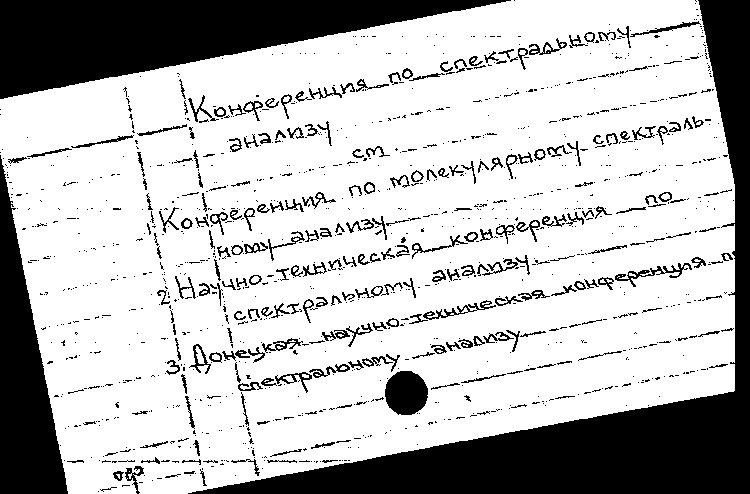 Конференция по спектральному
анализу
см.
1. Конференция по молекулярному спектраль-
ному анализу
2. Научно-техническая конференция по
спектральному анализу.
3. Донецкая научно-техническая конференция по
спектральному анализу